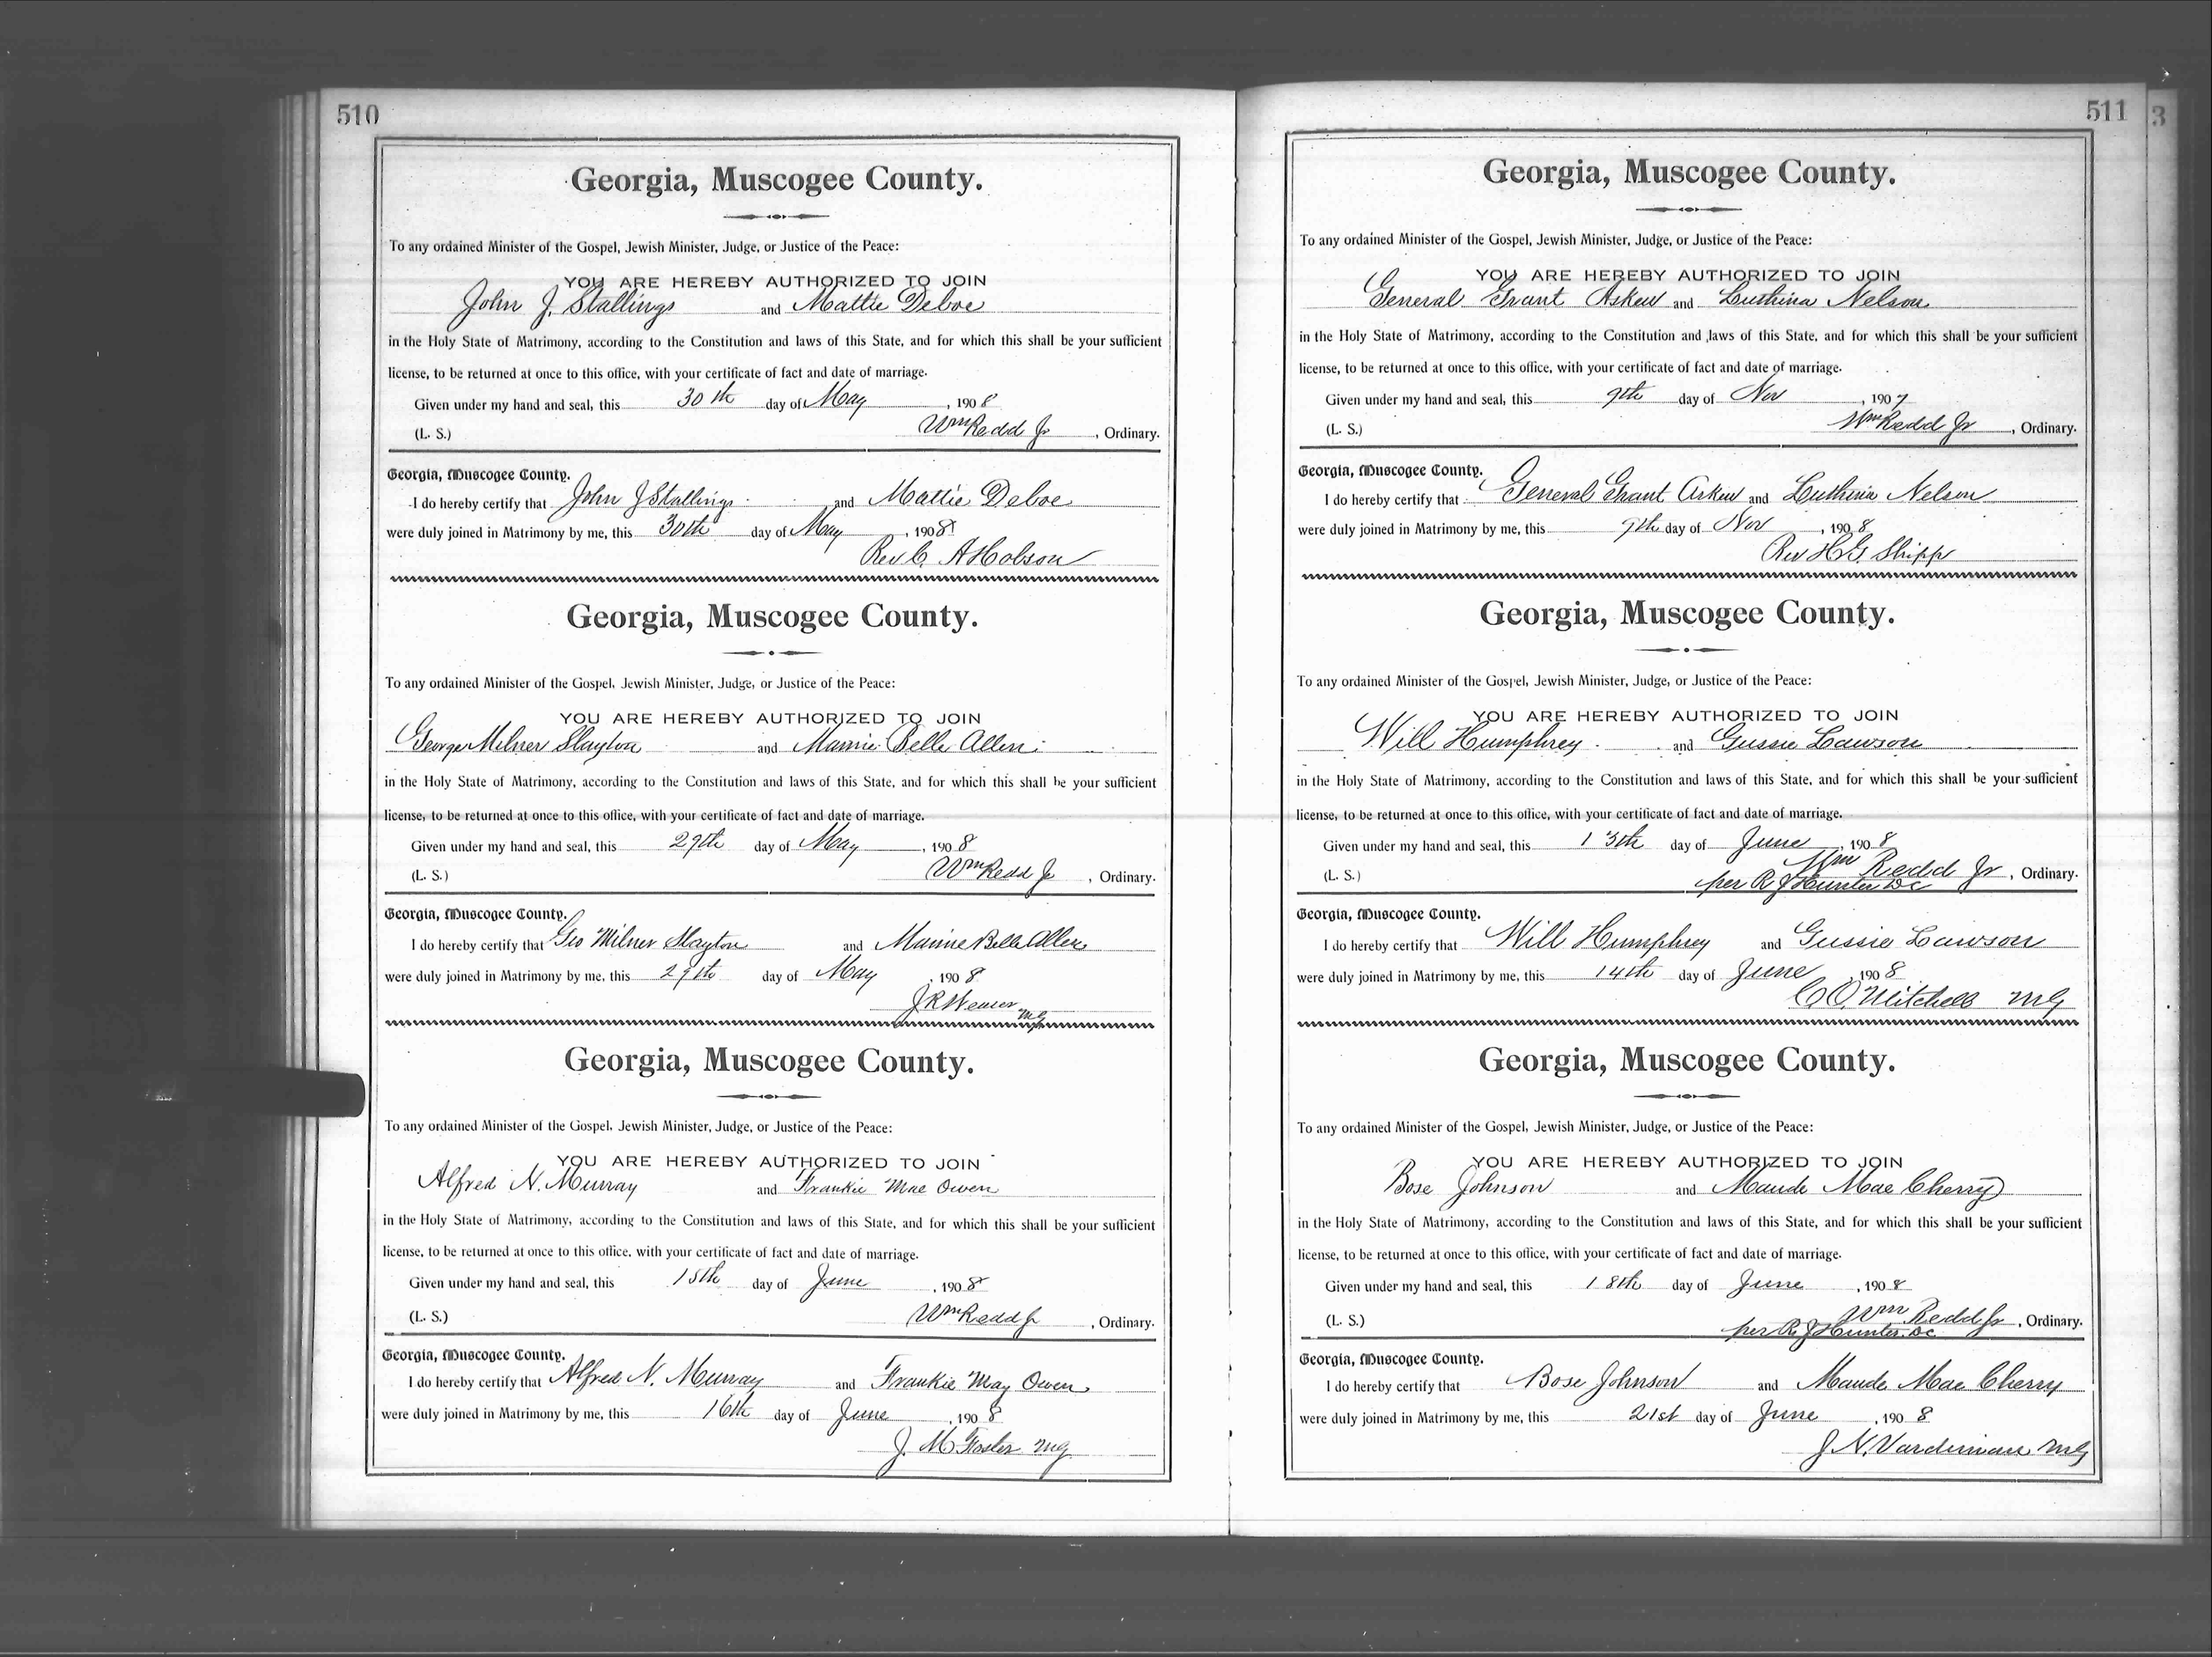 510
Georgia, Muscogee County.
To any ordained Minister of the Gospel, Jewish Minister, Judge, or Justice of the Peace:
YOU ARE HEREBY AUTHORIZED TO JOIN
John J. Stallings and Mattie Deloe
in the Holy State of Matrimony, according to the Constitution and laws of this State, and for which this shall be your sufficient
license, to be returned at once to this office, with your certificate of fact and date of marriage.
Given under my hand and seal, this 30th day of May, 1908
(L. S.) Wm Redd Jr, Ordinary.
Georgia, Muscogee County.
I do hereby certify that John J Stallings and Mattie Deloe
were duly joined in Matrimony by me, this 30th day of May, 1908
Rev C. A Hobson
Georgia, Muscogee County.
To any ordained Minister of the Gospel, Jewish Minister, Judge, or Justice of the Peace:
YOU ARE HEREBY AUTHORIZED TO JOIN
George Milner Slayton and Mamie Belle Allen
in the Holy State of Matrimony, according to the Constitution and laws of this State, and for which this shall be your sufficient
license, to be returned at once to this office, with your certificate of fact and date of marriage.
Given under my hand and seal, this 29th day of May, 1908
(L. S.) Wm Redd Jr, Ordinary.
Georgia, Muscogee County.
I do hereby certify that Geo Milner Slayton and Mamie Belle Allen
were duly joined in Matrimony by me, this 29th day of May, 1908
J R Weaver MG
Georgia, Muscogee County.
To any ordained Minister of the Gospel, Jewish Minister, Judge, or Justice of the Peace:
YOU ARE HEREBY AUTHORIZED TO JOIN
Alfred N. Murray and Frankie Mae Owen
in the Holy State of Matrimony, according to the Constitution and laws of this State, and for which this shall be your sufficient
license, to be returned at once to this office, with your certificate of fact and date of marriage.
Given under my hand and seal, this 15th day of June, 1908
(L. S.) Wm Redd Jr, Ordinary.
Georgia, Muscogee County.
I do hereby certify that Alfred N. Murray and Frankie May Owen
were duly joined in Matrimony by me, this 16th day of June, 1908
J. M. Foster MG
511
3
Georgia, Muscogee County.
To any ordained Minister of the Gospel, Jewish Minister, Judge, or Justice of the Peace:
YOU ARE HEREBY AUTHORIZED TO JOIN
General Grant Askew and Luthina Nelson
in the Holy State of Matrimony, according to the Constitution and laws of this State, and for which this shall be your sufficient
license, to be returned at once to this office, with your certificate of fact and date of marriage.
Given under my hand and seal, this 9th day of Nov, 1907
(L. S.) Wm Redd Jr, Ordinary.
Georgia, Muscogee County.
I do hereby certify that General Grant Askew and Luthina Nelson
were duly joined in Matrimony by me, this 9th day of Nov, 1908
Rev H. G. Shipp
Georgia, Muscogee County.
To any ordained Minister of the Gospel, Jewish Minister, Judge, or Justice of the Peace:
YOU ARE HEREBY AUTHORIZED TO JOIN
Will Humphrey and Gussie Lawson
in the Holy State of Matrimony, according to the Constitution and laws of this State, and for which this shall be your sufficient
license, to be returned at once to this office, with your certificate of fact and date of marriage.
Given under my hand and seal, this 13th day of June, 1908
(L. S.) Wm Redd Jr, Ordinary.
per R J Hunter DC
Georgia, Muscogee County.
I do hereby certify that Will Humphrey and Gussie Lawson
were duly joined in Matrimony by me, this 14th day of June, 1908
C O Mitchell MG
Georgia, Muscogee County.
To any ordained Minister of the Gospel, Jewish Minister, Judge, or Justice of the Peace:
YOU ARE HEREBY AUTHORIZED TO JOIN
Bose Johnson and Maude Mae Cherry
in the Holy State of Matrimony, according to the Constitution and laws of this State, and for which this shall be your sufficient
license, to be returned at once to this office, with your certificate of fact and date of marriage.
Given under my hand and seal, this 18th day of June, 1908
(L. S.) Wm Redd Jr, Ordinary.
per R. J Hunter. DC
Georgia, Muscogee County.
I do hereby certify that Bose Johnson and Maude Mae Cherry
were duly joined in Matrimony by me, this 21st day of June, 1908
J. N. Vardeman MG